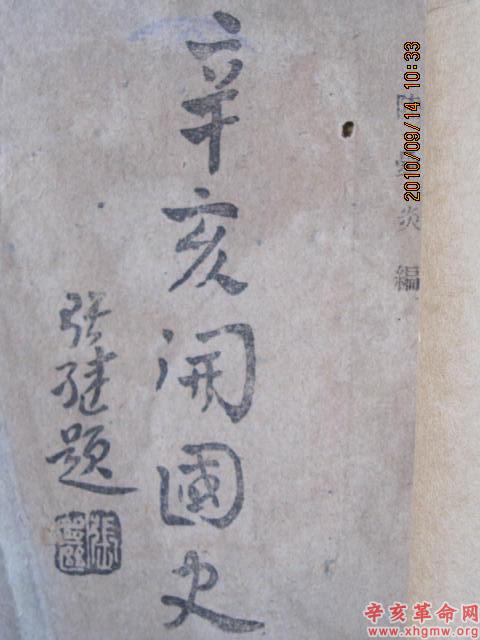 陈
炎 編
辛亥開國史
張繼題
2010/09/14 10:33
辛亥革命网
www.xhgmw.org